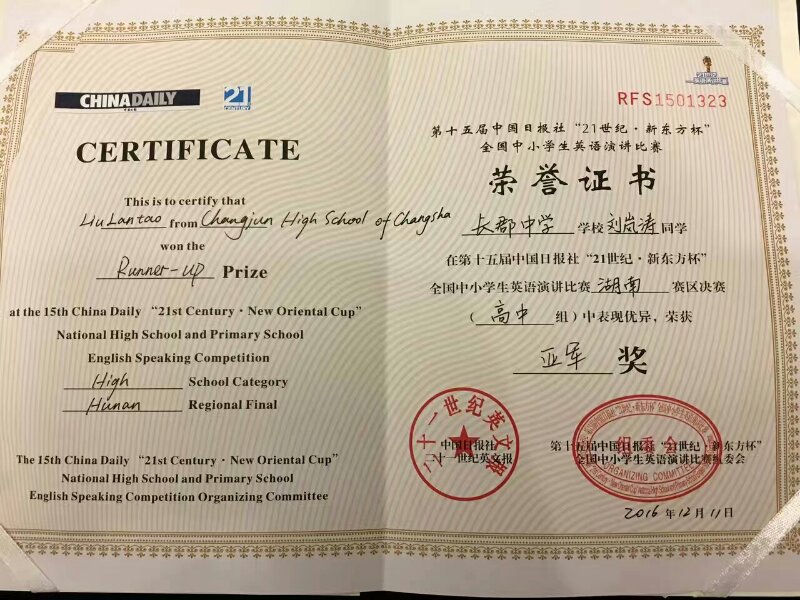 CHINADAILY
中国日报
21
CENTURY
CERTIFICATE
This is to certify that
Liu Lantao from Changjun High School of Changsha
won the
Runner-up Prize
at the 15th China Daily “21st Century · New Oriental Cup”
National High School and Primary School
English Speaking Competition
High School Category
Hunan Regional Final
The 15th China Daily “21st Century · New Oriental Cup”
National High School and Primary School
English Speaking Competition Organizing Committee
RFS1501323
第十五届中国日报社“21世纪·新东方杯”
全国中小学生英语演讲比赛
荣誉证书
长郡中学 学校 刘岚涛 同学
在第十五届中国日报社“21世纪·新东方杯”
全国中小学生英语演讲比赛 湖南 赛区决赛
（高中 组）中表现优异，荣获
亚军 奖
二十一世纪英文报
中国日报社
二十一世纪英文报
第十五届中国日报社“21世纪·新东方杯”
全国中小学生英语演讲比赛组委会
组委会
ORGANIZING COMMITTEE
2016年12月11日